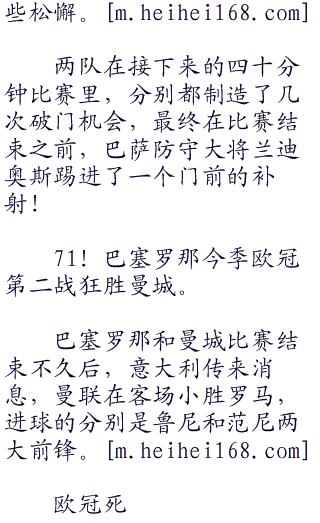 些松懈。[m.heihei168.com]
两队在接下来的四十分
钟比赛里，分别都制造了几
次破门机会，最终在比赛结
束之前，巴萨防守大将兰迪
奥斯踢进了一个门前的补
射！
71！巴塞罗那今季欧冠
第二战狂胜曼城。
巴塞罗那和曼城比赛结
束不久后，意大利传来消
息，曼联在客场小胜罗马，
进球的分别是鲁尼和范尼两
大前锋。[m.heihei168.com]
欧冠死